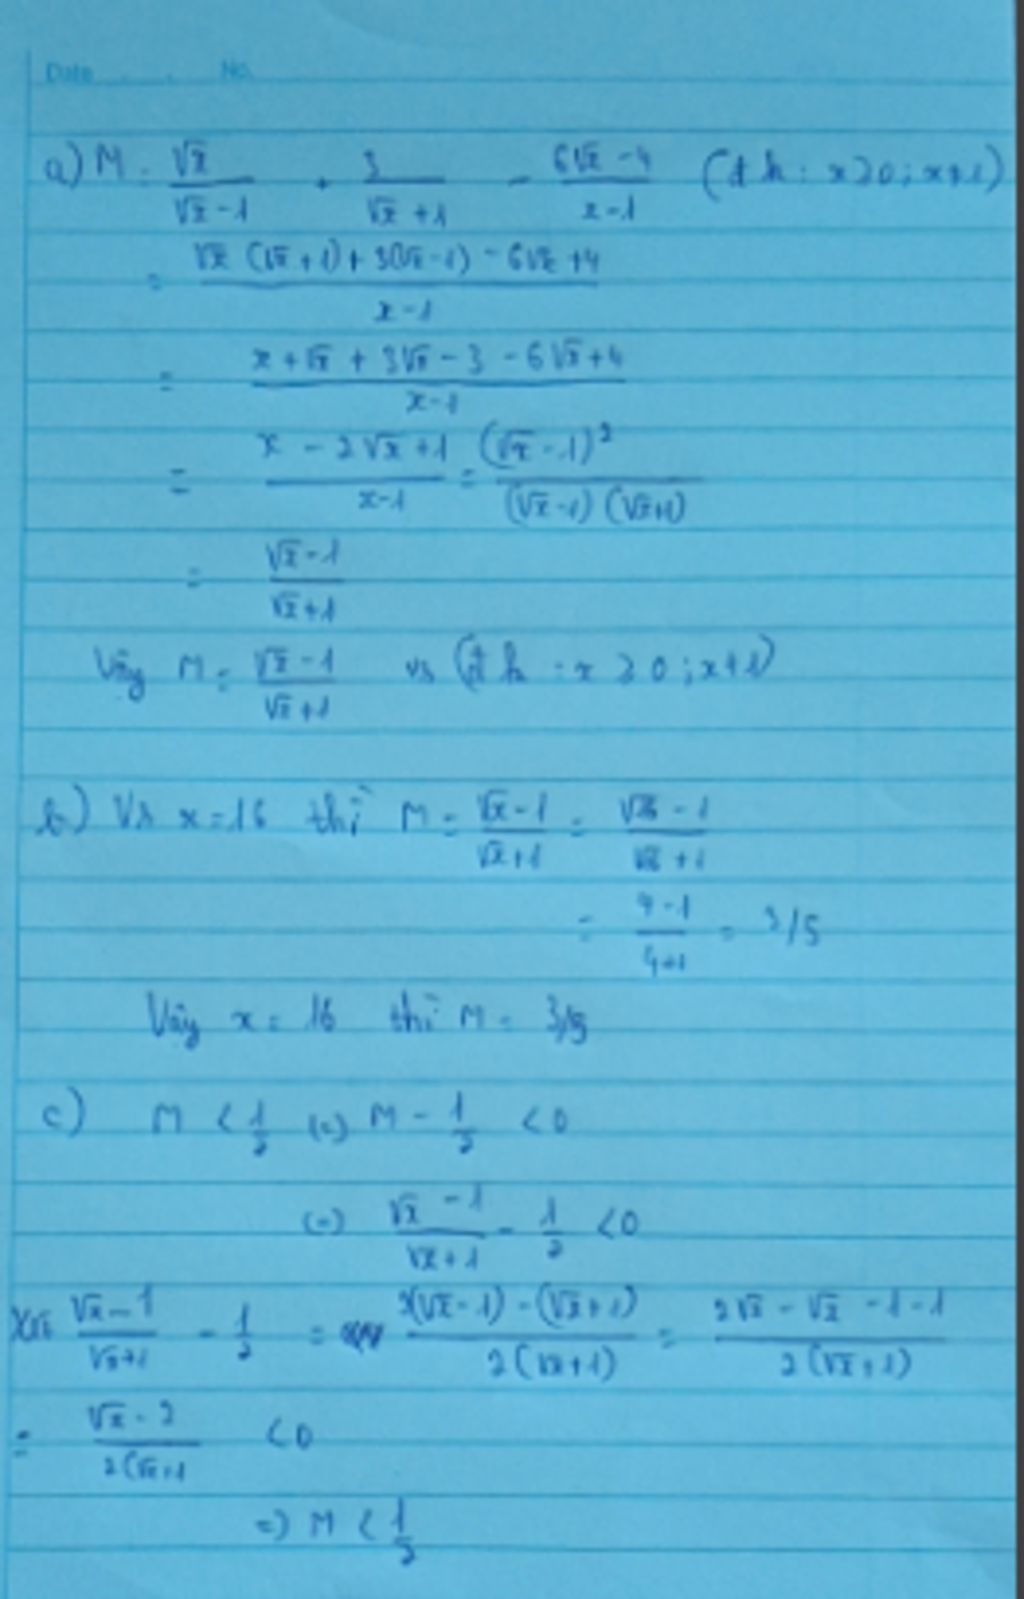 Date No.
a) M = √x / (√x - 1) + 3 / (√x + 1) - (6√x - 4) / (x - 1) (đk : x ≥ 0 ; x ≠ 1)
= (√x (√x + 1) + 3(√x - 1) - 6√x + 4) / (x - 1)
= (x + √x + 3√x - 3 - 6√x + 4) / (x - 1)
= (x - 2√x + 1) / (x - 1) = (√x - 1)² / ((√x - 1) (√x + 1))
= (√x - 1) / (√x + 1)
Vậy M = (√x - 1) / (√x + 1) vs (đk : x ≥ 0 ; x ≠ 1)
b) Vs x = 16 thì M = (√x - 1) / (√x + 1) = (√16 - 1) / (√16 + 1)
= (4 - 1) / (4 + 1) = 3/5
Vậy x = 16 thì M = 3/5
c) M < 1/2 (=) M - 1/2 < 0
(=) (√x - 1) / (√x + 1) - 1/2 < 0
Xét (√x - 1) / (√x + 1) - 1/2 = (2(√x - 1) - (√x + 1)) / (2(√x + 1)) = (2√x - √x - 1 - 1) / (2(√x + 1))
= (√x - 2) / (2(√x + 1 < 0
=) M < 1/2